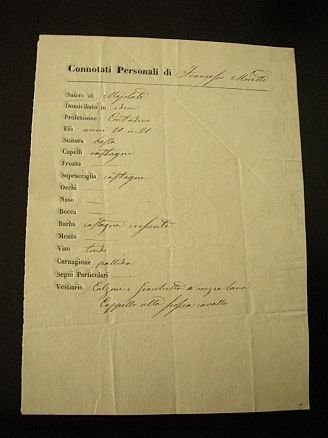 Connotati Personali di Francesco Moretti
Nativo di Majolati
Domiciliato in idem
Professione Contadino
Età anni 20 in 21
Statura bassa
Capelli castagni
Fronte
Sopracciglia castagne
Occhi
Naso
Bocca
Barba castagna nascente
Mento
Viso tondo
Carnagione pallida
Segni Particolari
Vestiario Calzoni e Giacchetta di mezza lana
Cappello alla